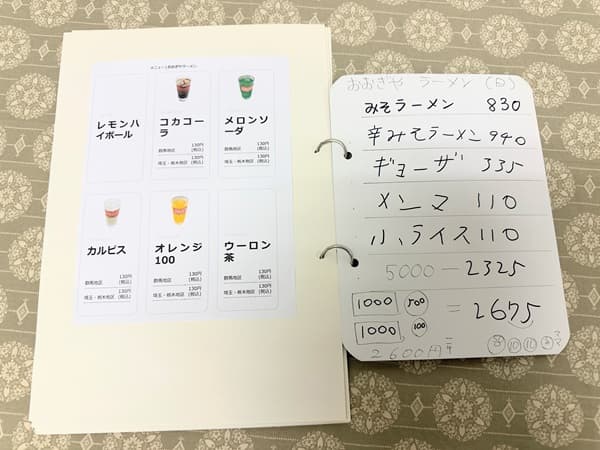 メニュー | おおぎやラーメン
レモンハイボール
コカコーラ
群馬地区 130円(税込)
埼玉・栃木地区 130円(税込)
メロンソーダ
群馬地区 130円(税込)
埼玉・栃木地区 130円(税込)
カルピス
群馬地区 130円(税込)
埼玉・栃木地区 130円(税込)
オレンジ100
群馬地区 130円(税込)
埼玉・栃木地区 130円(税込)
ウーロン茶
群馬地区 130円(税込)
埼玉・栃木地区 130円(税込)
おおぎや ラーメン (白)
みそラーメン 830
辛みそラーメン 940
ギョーザ 335
メンマ 110
小、ライス 110
5000 — 2325
1000 500 = 2675
1000 100
2600円